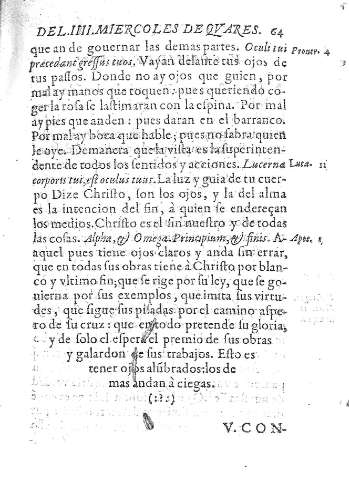 DEL. IIII. MIERCOLES DE QVARES. 64
que an de gouernar las demas partes. Oculi tui Prouer. 4
præcedant gressus tuos. Vayan delante tus ojos de
tus passos. Donde no ay ojos que guien, por
mal ay manos que toquen: pues queriendo co
ger la rosa se lastimaran con la espina. Por mal
ay pies que anden: pues daran en el barranco.
Por mal ay boca que hable; pues no sabra quien
le oye. De manera que la vista es la superinten-
dente de todos los sentidos y acciones. Lucerna Luca.
corporis tui, est oculus tuus. La luz y guia de tu cuer-
po Dize Christo, son los ojos, y la del alma
es la intencion del fin, à quien se endereçan
los medios. Christo es el fin nuestro y de todas
las cosas. Alpha, & Omega. Principium, & finis. A- Apoc. 1.
aquel pues tiene ojos claros y anda sin errar,
que en todas sus obras tiene à Christo por blan-
co y vltimo fin; que se rige por su ley, que se go-
uierna por sus exemplos, que imita sus virtu-
des, que sigue sus pisadas por el camino aspe-
ro de su cruz: que en todo pretende su gloria,
y de solo el espera el premio de sus obras
y galardon de sus trabajos. Esto es
tener ojos alũbrados: los de
mas andan à ciegas.
(:?:)
V. CON-